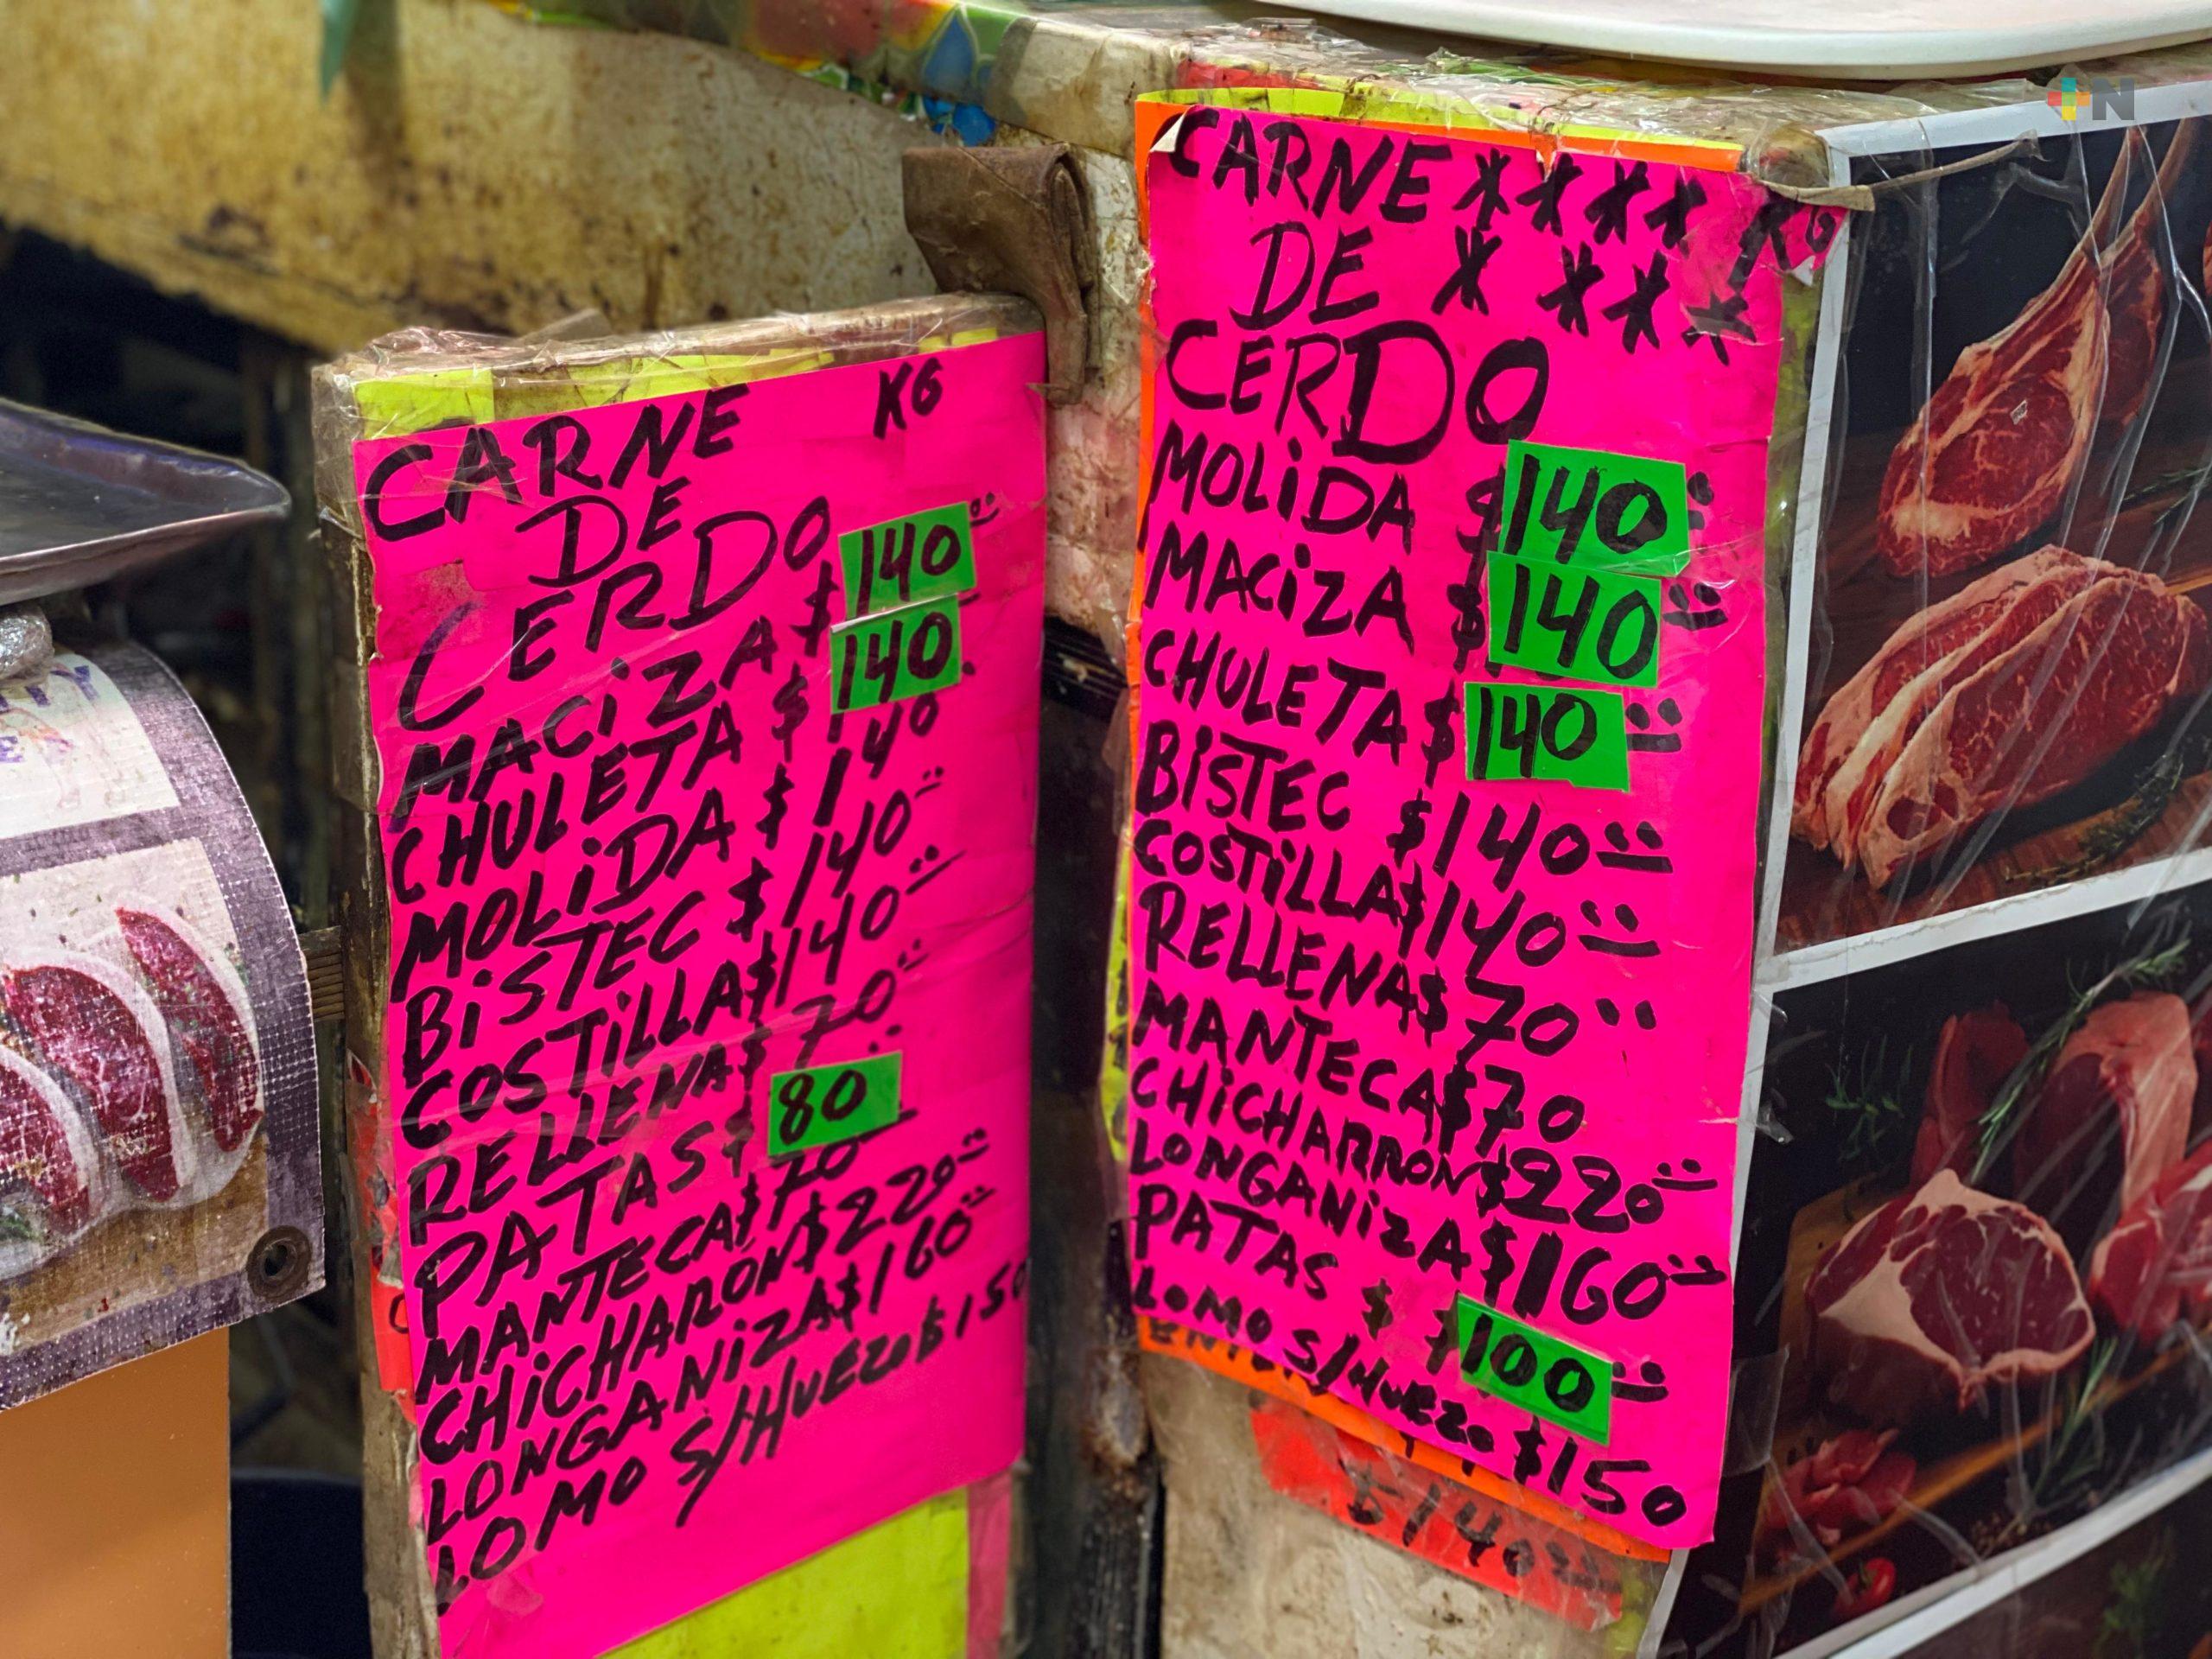 CARNE KG
DE
CERDO
MACIZA $140
CHULETA $140
MOLIDA $140
BISTEC $140
COSTILLA $140
RELLENA $70
PATAS $80
MANTECA $70
CHICHARON $220
LONGANIZA $160
LOMO S/HUEZO $150
CARNE **** KG
DE * ***
CERDO
MOLIDA $140
MACIZA $140
CHULETA $140
BISTEC $140
COSTILLA $140
RELLENA $70
MANTECA $70
CHICHARRON $220
LONGANIZA $160
PATAS $ $100
LOMO S/HUEZO $150
$140
+N